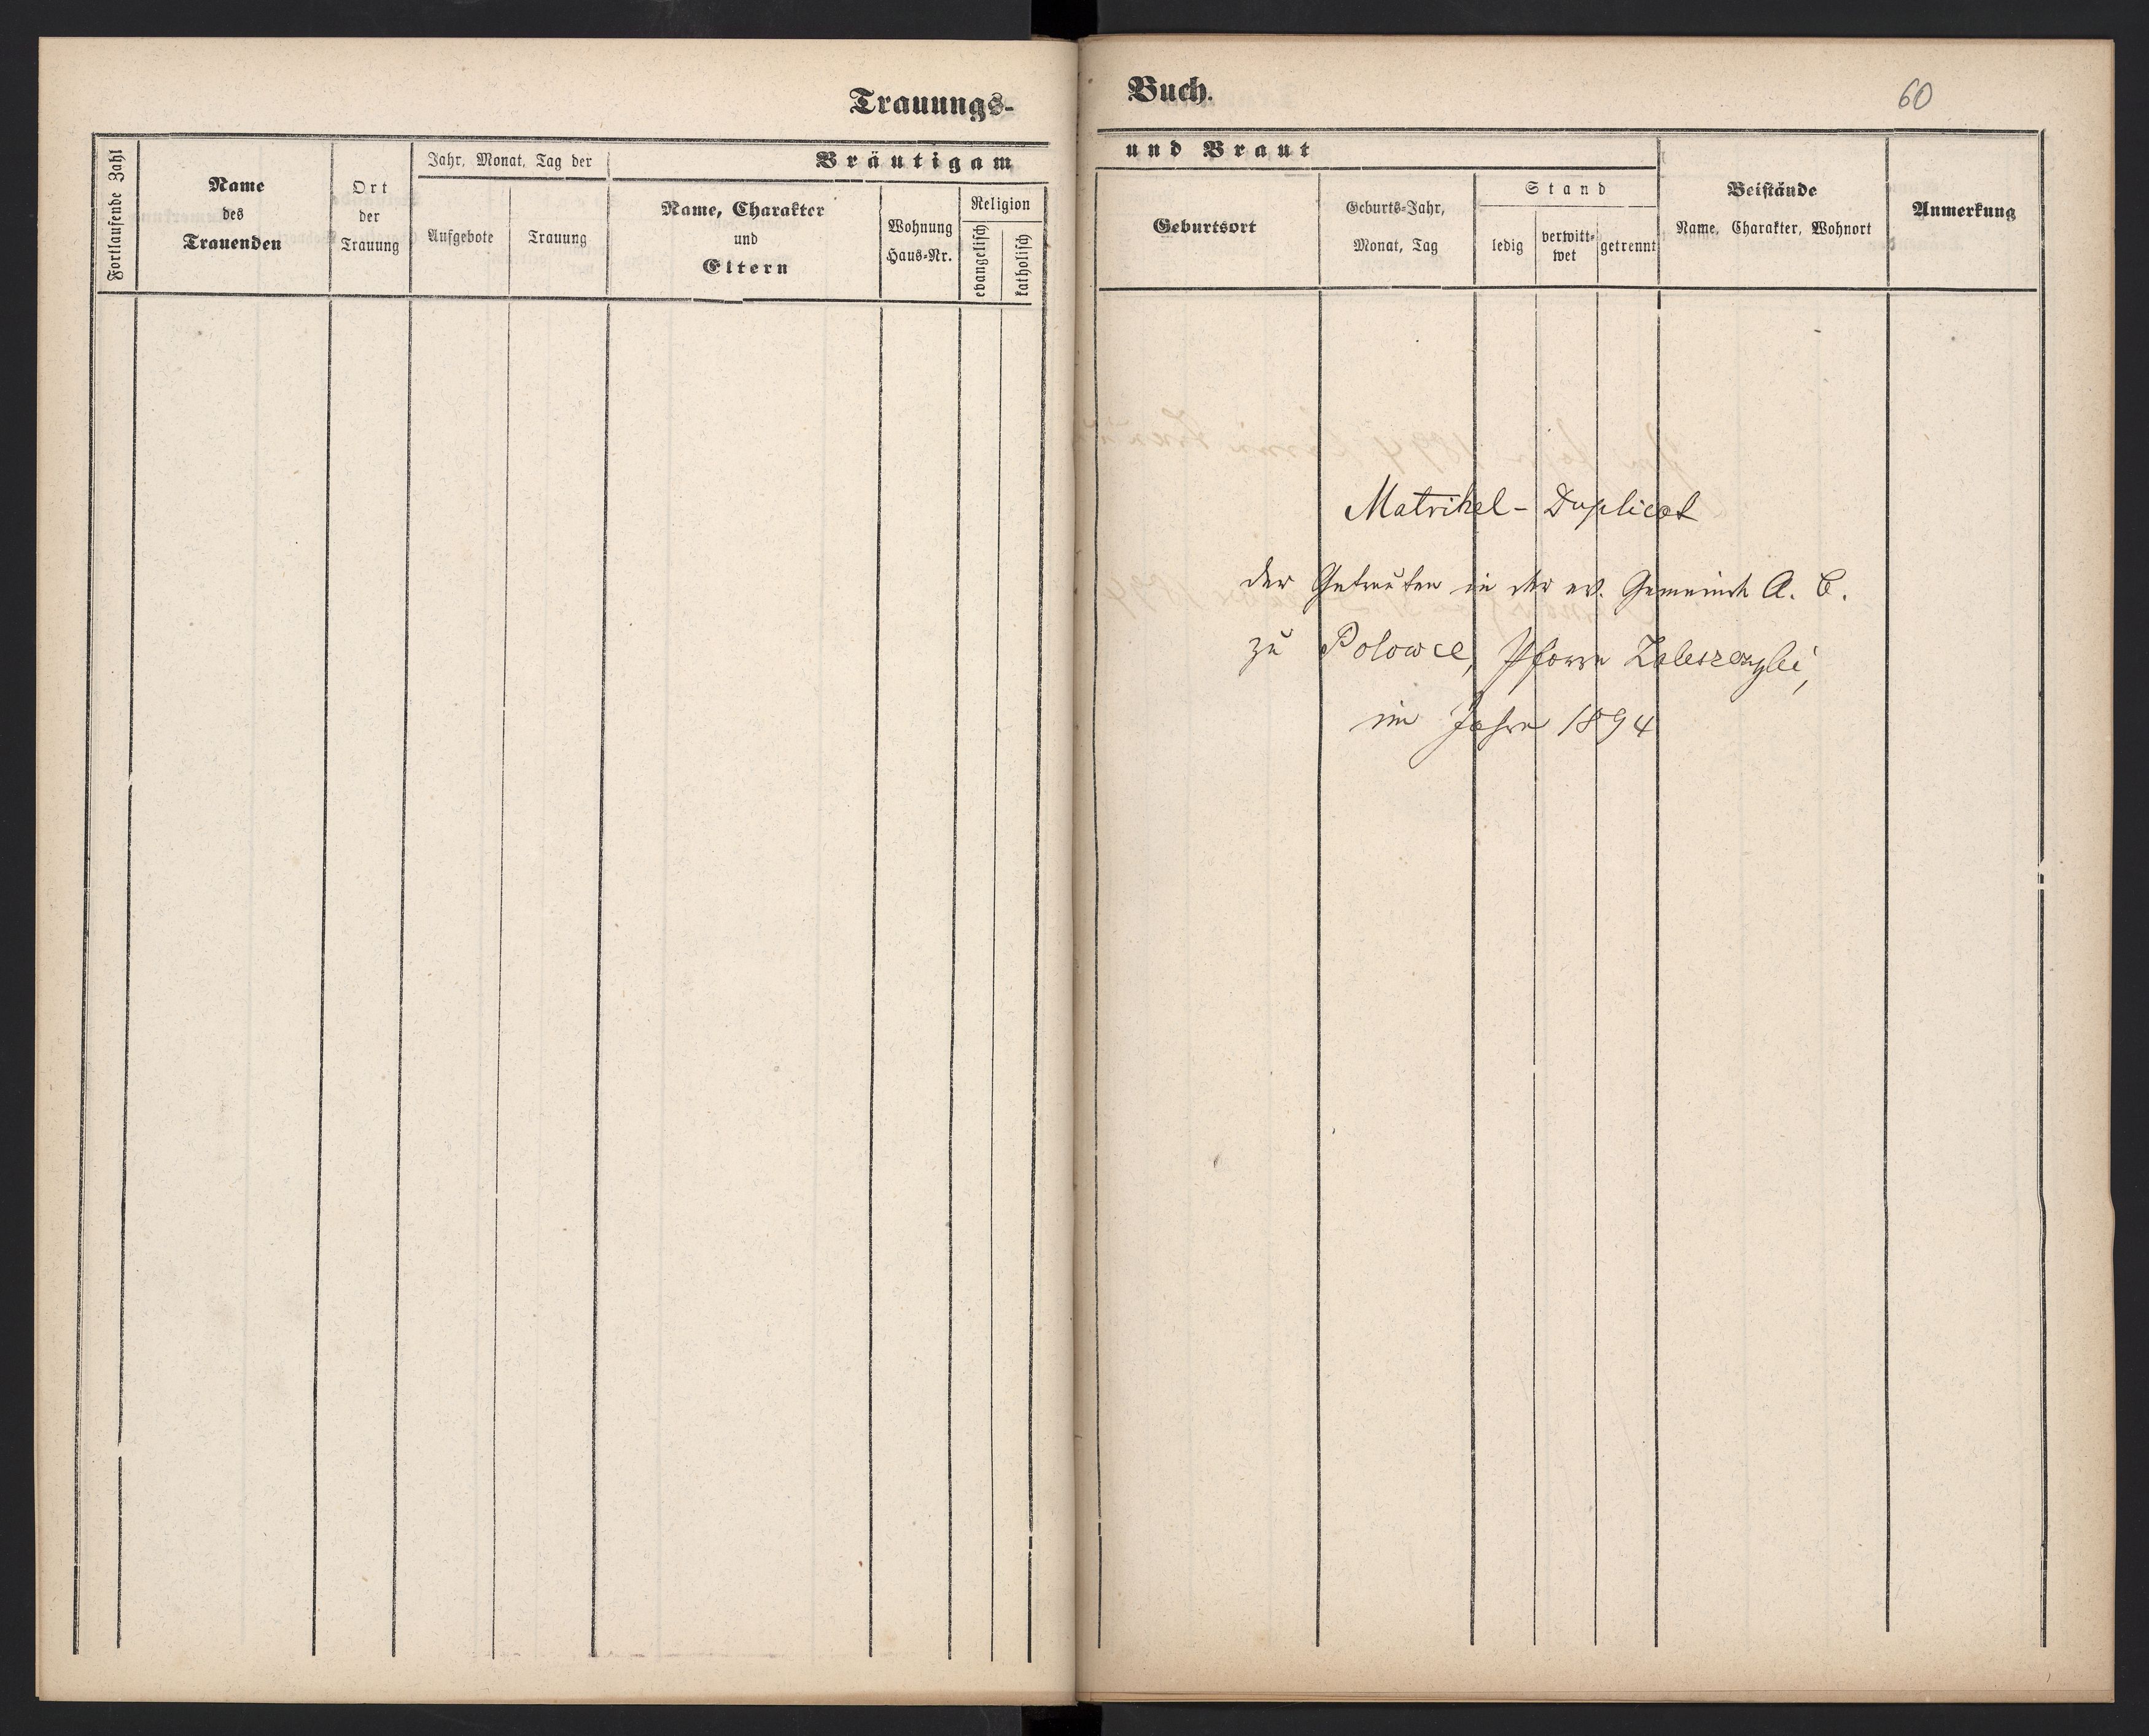 Trauungs-
Fortlaufende Zahl
Name
des
Trauenden
Ort
der
Trauung
Jahr, Monat, Tag der
Aufgebote
Trauung
Bräutigam
Name, Charakter
und
Eltern
Wohnung
Haus-Nr.
Religion
evangelisch
katholisch
Buch.
60
und Braut
Geburtsort
Geburts-Jahr,
Monat, Tag
Stand
ledig
verwitt-
wet
getrennt
Beistände
Name, Charakter, Wohnort
Anmerkung
Matrikel - Duplicat
der Getrauten in der ev. Gemeinde A. C.
zu Polowce, Pfarre Zaleszczyki,
im Jahre 1894